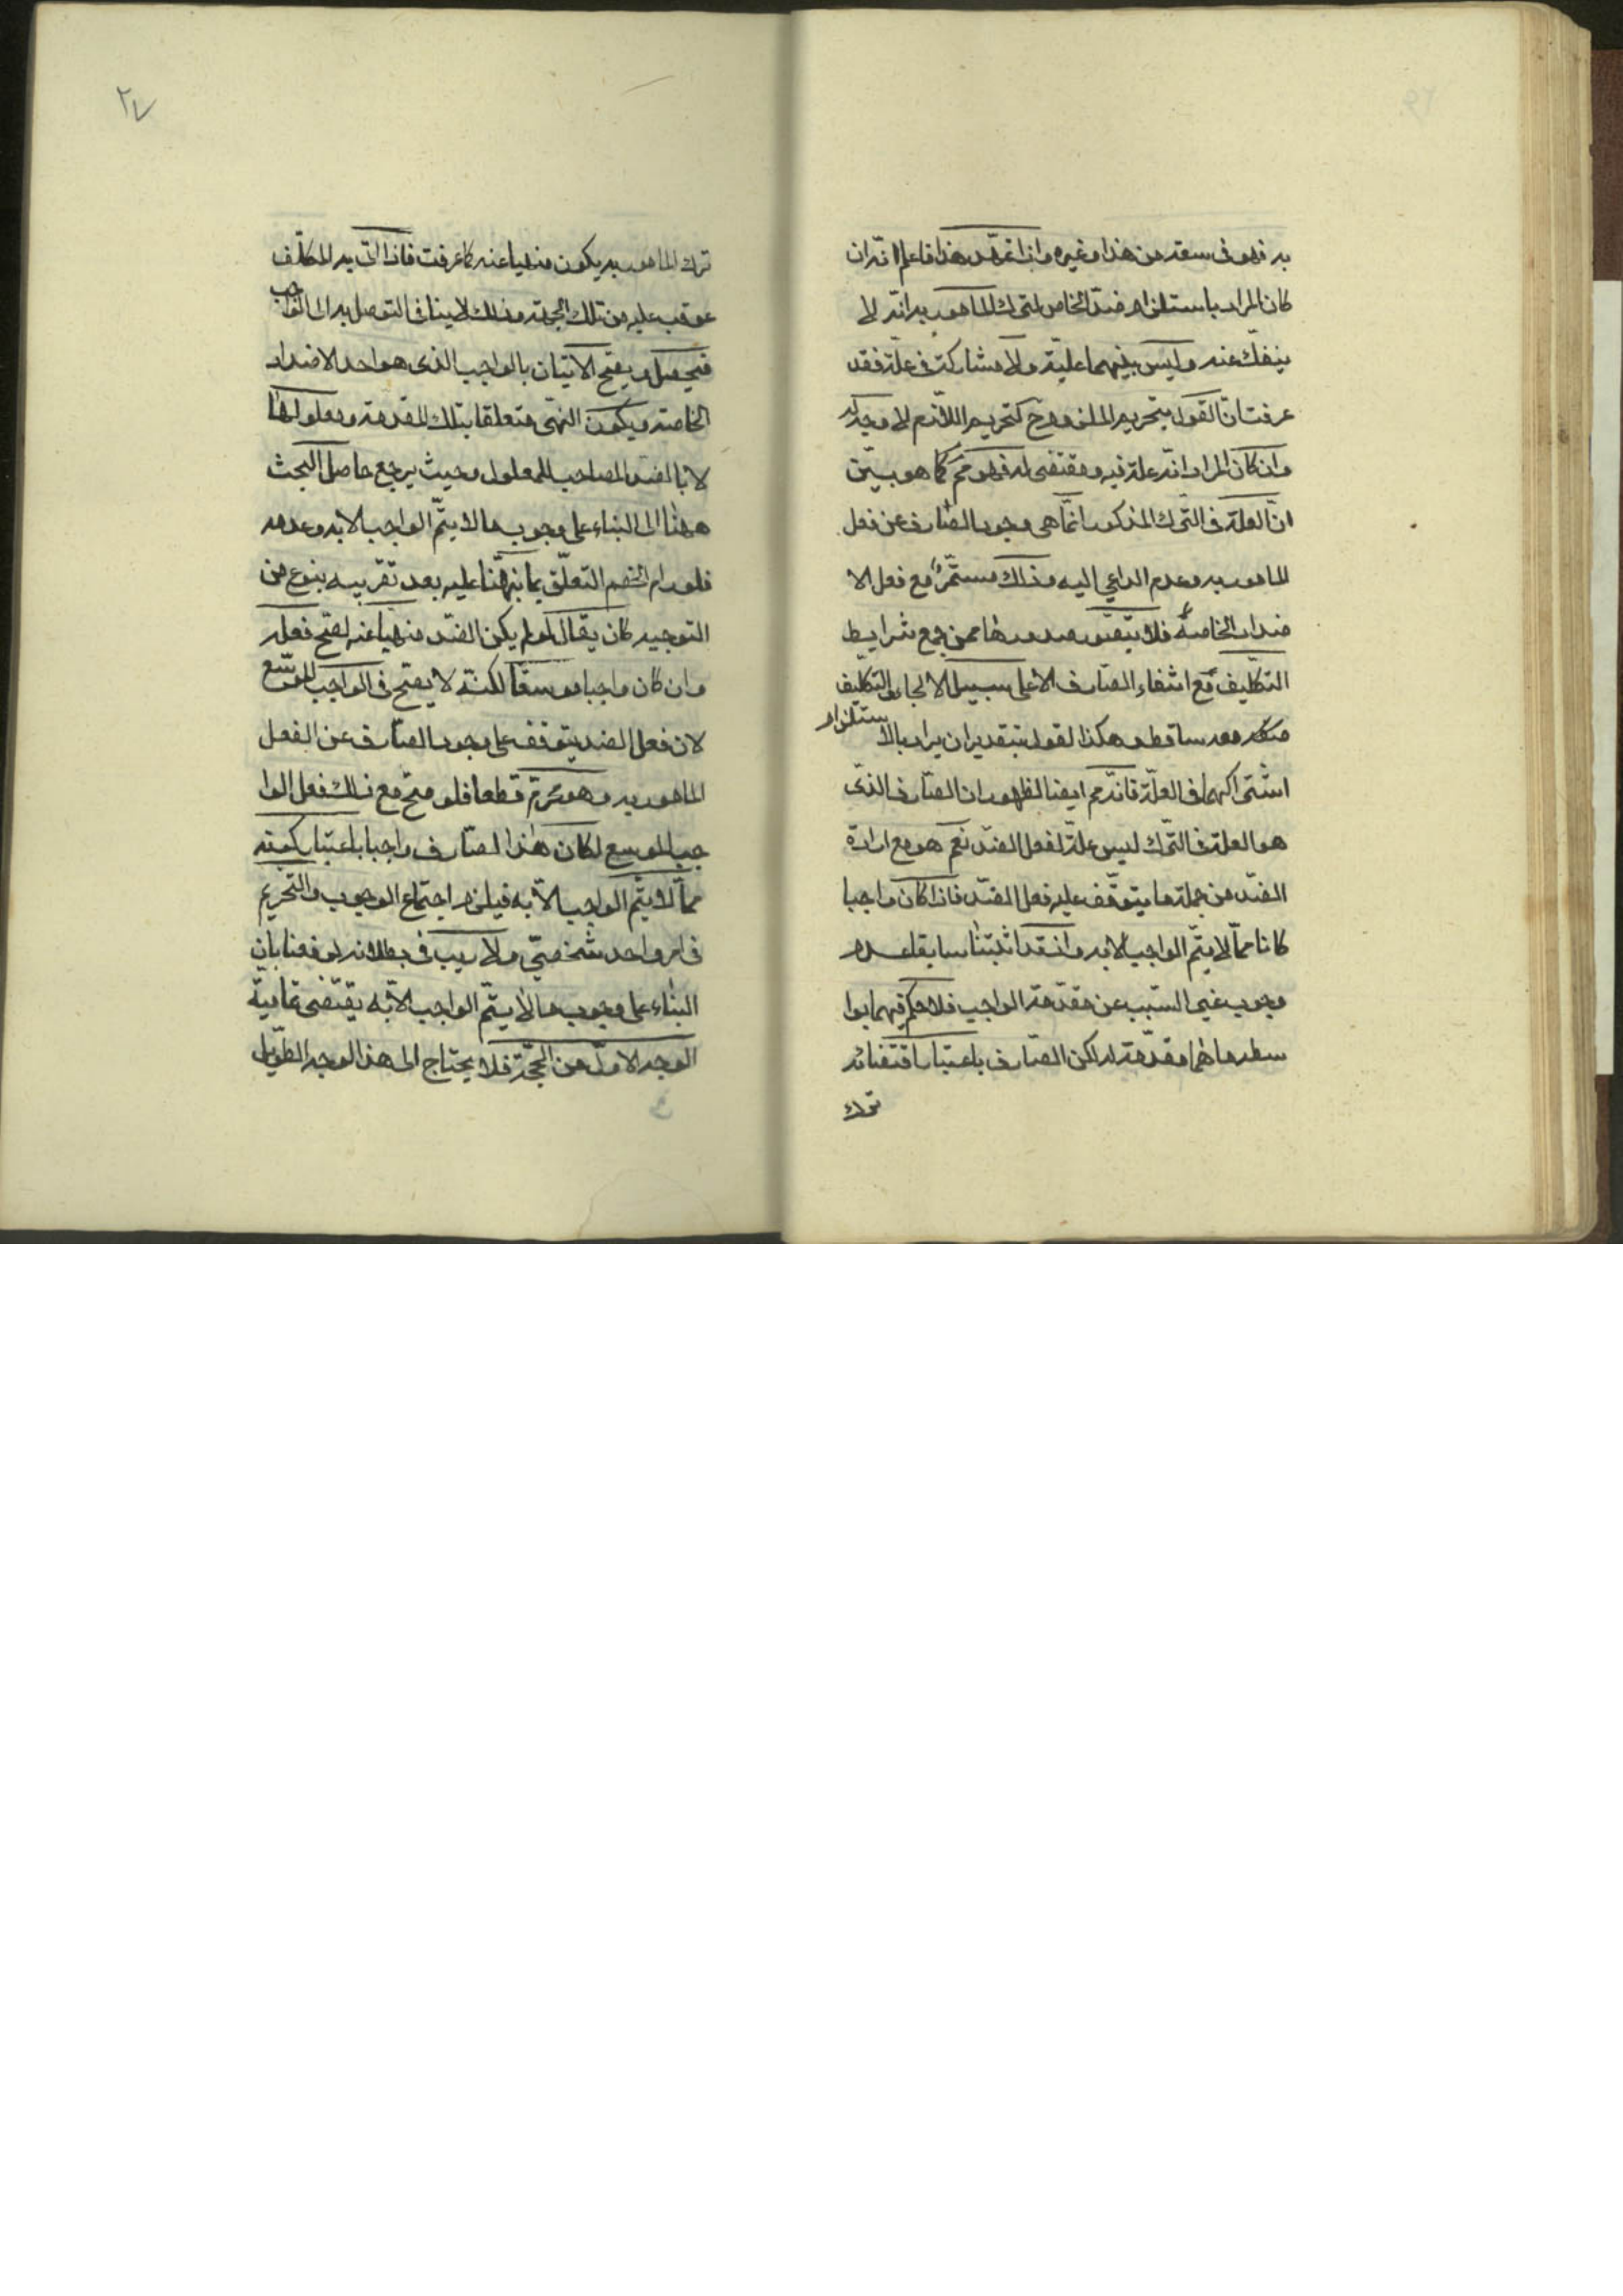 به فهو في سعة من هذا وغيره واذا تمهد هذا فاعلم انّه ان
كان المراد باستلزام ضد الخاص لترك المامور به انّه لا
ينفك عنه وليس بينهما علية ولا مشاركة في علة فقد
عرفت انّ القول بتحريم الملزوم ح كتحريم اللازم لا وجه له
وان كان المراد انّه علة فيه ومقتضى له فهو مم كما هو بيّن
انّ العلة في الترك المذكور انّما هي وجود الصّارف عن فعل
المامور به وعدم الداعي اليه وذلك مستمرّ مع فعل الا
ضداد الخاصة فلا يتصوّر صدورها ممن جمع شرايط
التكليف مع انتفاء الصّارف الا على سبيل الالجاء والتكليف
معه ساقط وهكذا القول بتقدير ان يراد بالاستلزام
اشتراكهما في العلّة فانّه مم ايضا لظهور ان الصّارف الذي
هو العلة في الترك ليس علة لفعل الضدّ نعم هو مع ارادة
الضدّ من جملة ما يتوقّف عليه فعل الضدّ فاذا كان واجبا
كانا ممّا لا يتمّ الواجب الا به واذ قد اثبتنا سابقا عدم
وجوب غير السّبب من مقدمة الواجب فلا حكم فيهما بوا
سطة ما هما مقدّمة له لكن الصّارف باعتبار اقتضائه
ترك
٢٧
ترك المامور به يكون منهيا عنه كما عرفت فاذا اتى به المكلّف
عوقب عليه من تلك الجهة وذلك لا ينافي التوصل به الى الواجب
فيحصل ويصح الاتيان بالواجب الذي هو احد الاضداد
الخاصة ويكون النهى متعلقا بتلك المقدمة ومعلولها
لا بالضد المصاحب للمعلول وحيث يرجع حاصل البحث
ههنا الى البناء على وجوب ما لا يتمّ الواجب الا به وعدمه
فلو رام الخصم التعلّق بما نبّهنا عليه بعد تقريبه بنوع من
التوجيه كان يقال لو لم يكن الضدّ منهيا عنه لصحّ فعله
وان كان واجبا موسعا لكنّه لا يصح في الواجب الموسّع
لان فعل الضد يتوقف على وجود الصّارف عن الفعل
المامور به وهو محرّم قطعا فلو صحّ مع ذلك فعل الوا
جب الموسع لكان هذا الصّارف واجبا باعتبار كونه
ممّا لا يتمّ الواجب الّا به فيلزم اجتماع الوجوب والتحريم
في امر واحد شخصيّ ولا ريب في بطلانه لدفعنا بان
البناء على وجوب ما لا يتمّ الواجب الّا به يقتضى تمامية
الوجه الاوّل من الحجّة فلا يحتاج الى هذا الوجه الطّويل